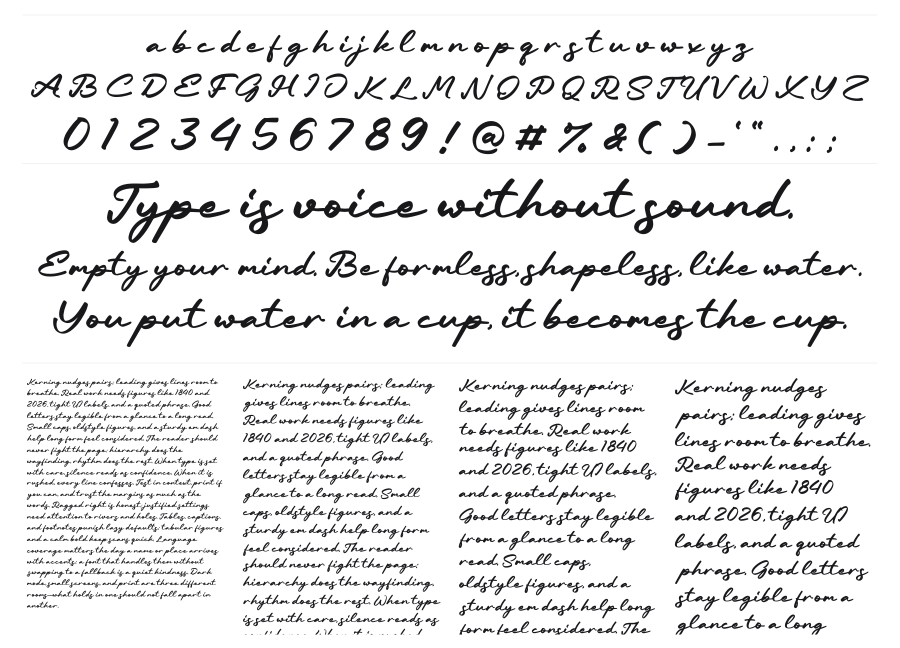 a b c d e f g h i j k l m n o p q r s t u v w x y z
A B C D E F G H I J K L M N O P Q R S T U V W X Y Z
0 1 2 3 4 5 6 7 8 9 ! @ # % & ( ) – ‘ “ . , : ;
Type is voice without sound.
Empty your mind. Be formless, shapeless, like water.
You put water in a cup, it becomes the cup.
Kerning nudges pairs; leading gives lines room to
breathe. Real work needs figures like 1840 and
2026, tight UI labels, and a quoted phrase. Good
letters stay legible from a glance to a long read.
Small caps, oldstyle figures, and a sturdy em dash
help long form feel considered. The reader should
never fight the page; hierarchy does the
wayfinding, rhythm does the rest. When type is set
with care, silence reads as confidence. When it is
rushed, every line confesses. Test in context, print if
you can, and trust the margins as much as the
words. Ragged right is honest; justified settings
need attention to rivers and holes. Tables, captions,
and footnotes punish lazy defaults; tabular figures
and a calm bold keep scans quick. Language
coverage matters the day a name or place arrives
with accents; a font that handles them without
swapping to a fallback is a quiet kindness. Dark
mode, small screens, and print are three different
rooms—what holds in one should not fall apart in
another.
Kerning nudges pairs; leading
gives lines room to breathe.
Real work needs figures like
1840 and 2026, tight UI labels,
and a quoted phrase. Good
letters stay legible from a
glance to a long read. Small
caps, oldstyle figures, and a
sturdy em dash help long form
feel considered. The reader
should never fight the page;
hierarchy does the wayfinding,
rhythm does the rest. When type
is set with care, silence reads as
confidence. When it is rushed,
Kerning nudges pairs;
leading gives lines room
to breathe. Real work
needs figures like 1840
and 2026, tight UI labels,
and a quoted phrase.
Good letters stay legible
from a glance to a long
read. Small caps,
oldstyle figures, and a
sturdy em dash help long
form feel considered. The
Kerning nudges
pairs; leading gives
lines room to breathe.
Real work needs
figures like 1840
and 2026, tight UI
labels, and a quoted
phrase. Good letters
stay legible from a
glance to a long